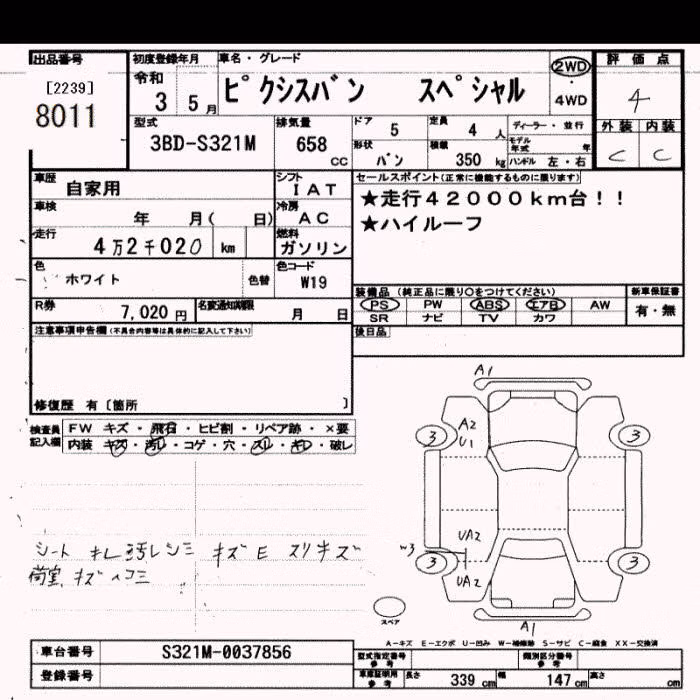 出品番号
[2239]
8011
初度登録年月
令和
3 5月
車名・グレード
ピクシスバン スペシャル
2WD
・
4WD
評価点
4
外装 内装
C C
型式
3BD-S321M
排気量
658
CC
ドア
5
定員
4 人
ディーラー・並行
形状
バン
積載
350 kg
モデル年式 年
ハンドル 左・右
車歴
自家用
シフト
IAT
車検
年 月( 日)
冷房
AC
走行
4万2千020 km
燃料
ガソリン
色
ホワイト
色替
色コード
W19
R券
7,020円
名変通知期限
月 日
セールスポイント(正常に機能するものに限ります)
★走行42000km台!!
★ハイルーフ
装備品(純正品に限り○をつけてください)
PS PW ABS エアB AW
SR ナビ TV カワ
新車保証書
有・無
後日品
注意事項申告欄(不具合内容等は具体的に記入して下さい)
修復歴 有〔箇所 〕
検査員記入欄
FW キズ・飛石・ヒビ割・リペア跡・×要
内装 キズ・汚レ・コゲ・穴・スレ・キレ・破レ
シート キレ 汚レシミ キズ E スリキズ
荷室 キズ ヘコミ
A1
3
A2
U1
3
UA2
W3
3
UA2
3
A1
スペア
A-キズ E-エクボ U-凹み W-補修跡 S-サビ C-腐食 XX-交換済
車台番号
S321M-0037856
登録番号
型式指定番号
参考
類別区分番号
参考
車庫証明用
参考
長さ 339 cm
幅 147 cm
高さ cm